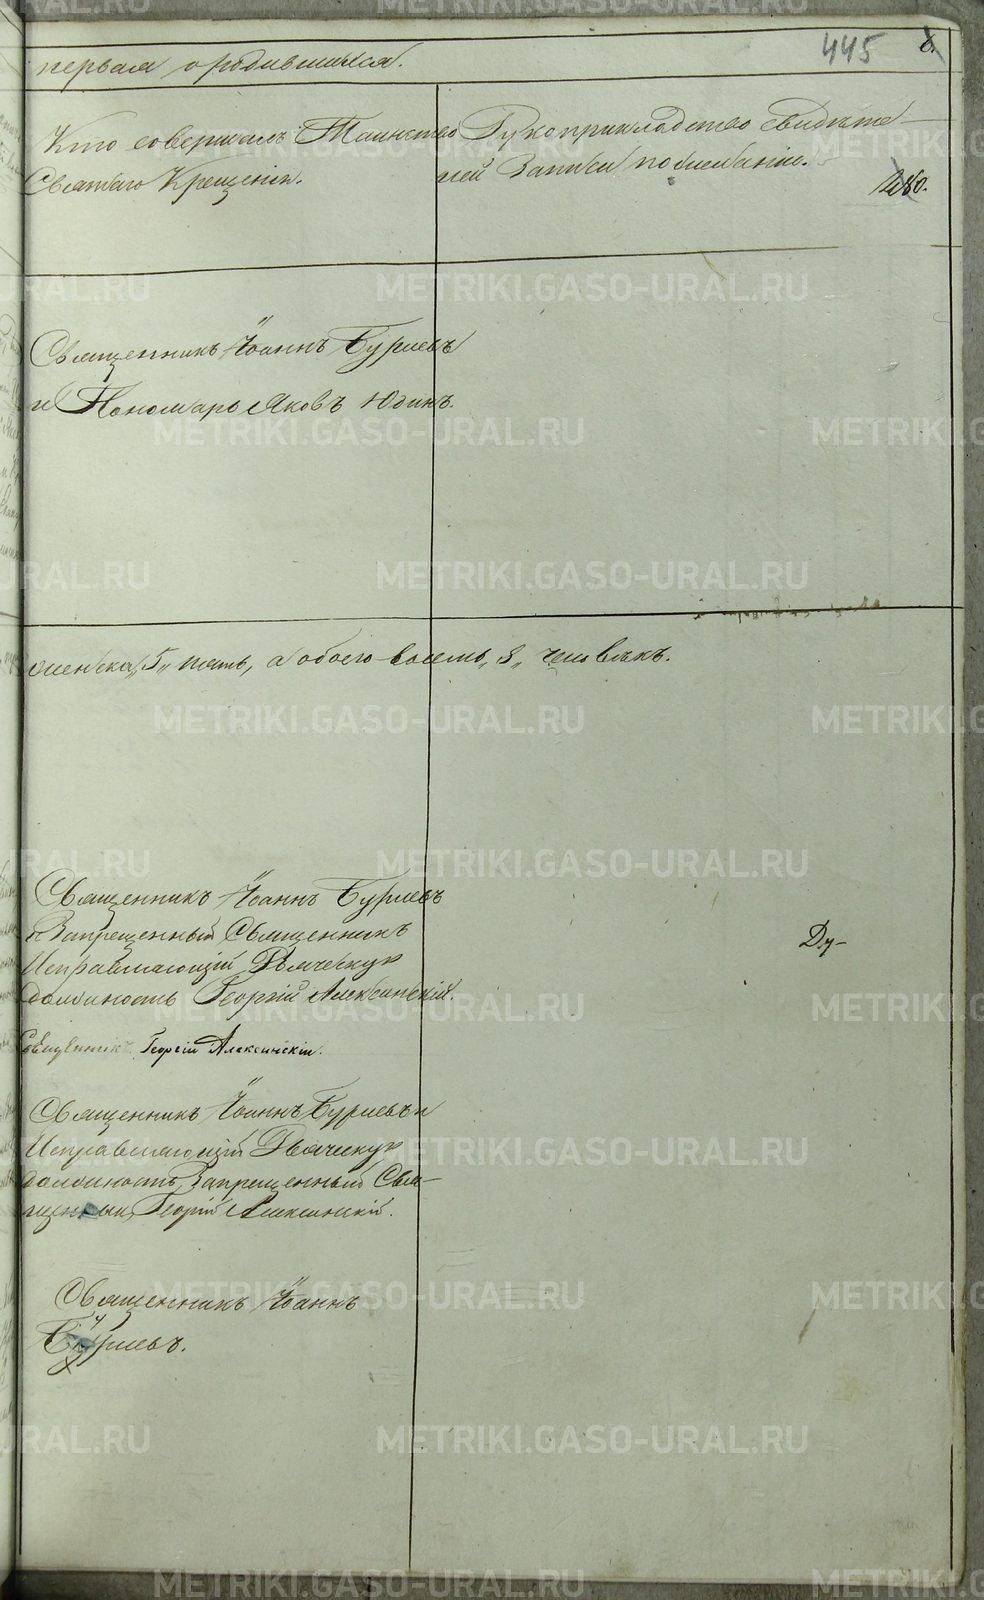 445
первая о родившихся.
Кто совершалъ Таинство
Святаго Крещенія.
Рукоприкладство свидѣте-
лей Записи по желанію.
Священникъ Іоаннъ Буриевъ
и Пономарь Яковъ Юдинъ.
женска „5„ пять, а обоего восемь „8„ человѣкъ.
Священникъ Іоаннъ Буриевъ
и Запрещенный Священникъ
Исправляющій Дьяческую
должность Георгій Алексинскій.
Священникъ Георгій Алексинскій.
Ду-
Священникъ Іоаннъ Буриевъ и
Исправляющій Дьяческую
должность Запрещенный Свя-
щенник Георгій Алексинскій.
Священникъ Іоаннъ
Буриевъ.
METRIKI.GASO-URAL.RU